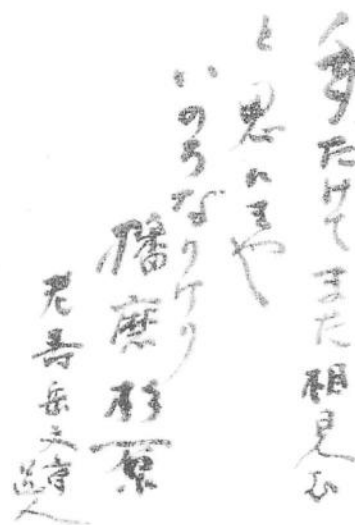 年たけてまた相見む
と思ひきや
いのちなりけり
播磨杉原
老寿岳文章
道人